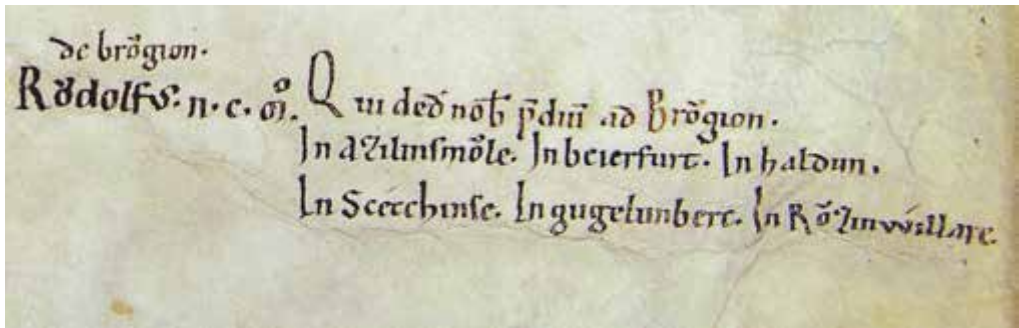 de brůgion.
Růdolfus. n. c. m̊. Qui dedˉ nob̄ p̄diū ad Brůgion.
In Azilinsmůle. In beierfurt. In haldun.
In Scerchinse. In gugelunberc. In Růzinwillare.